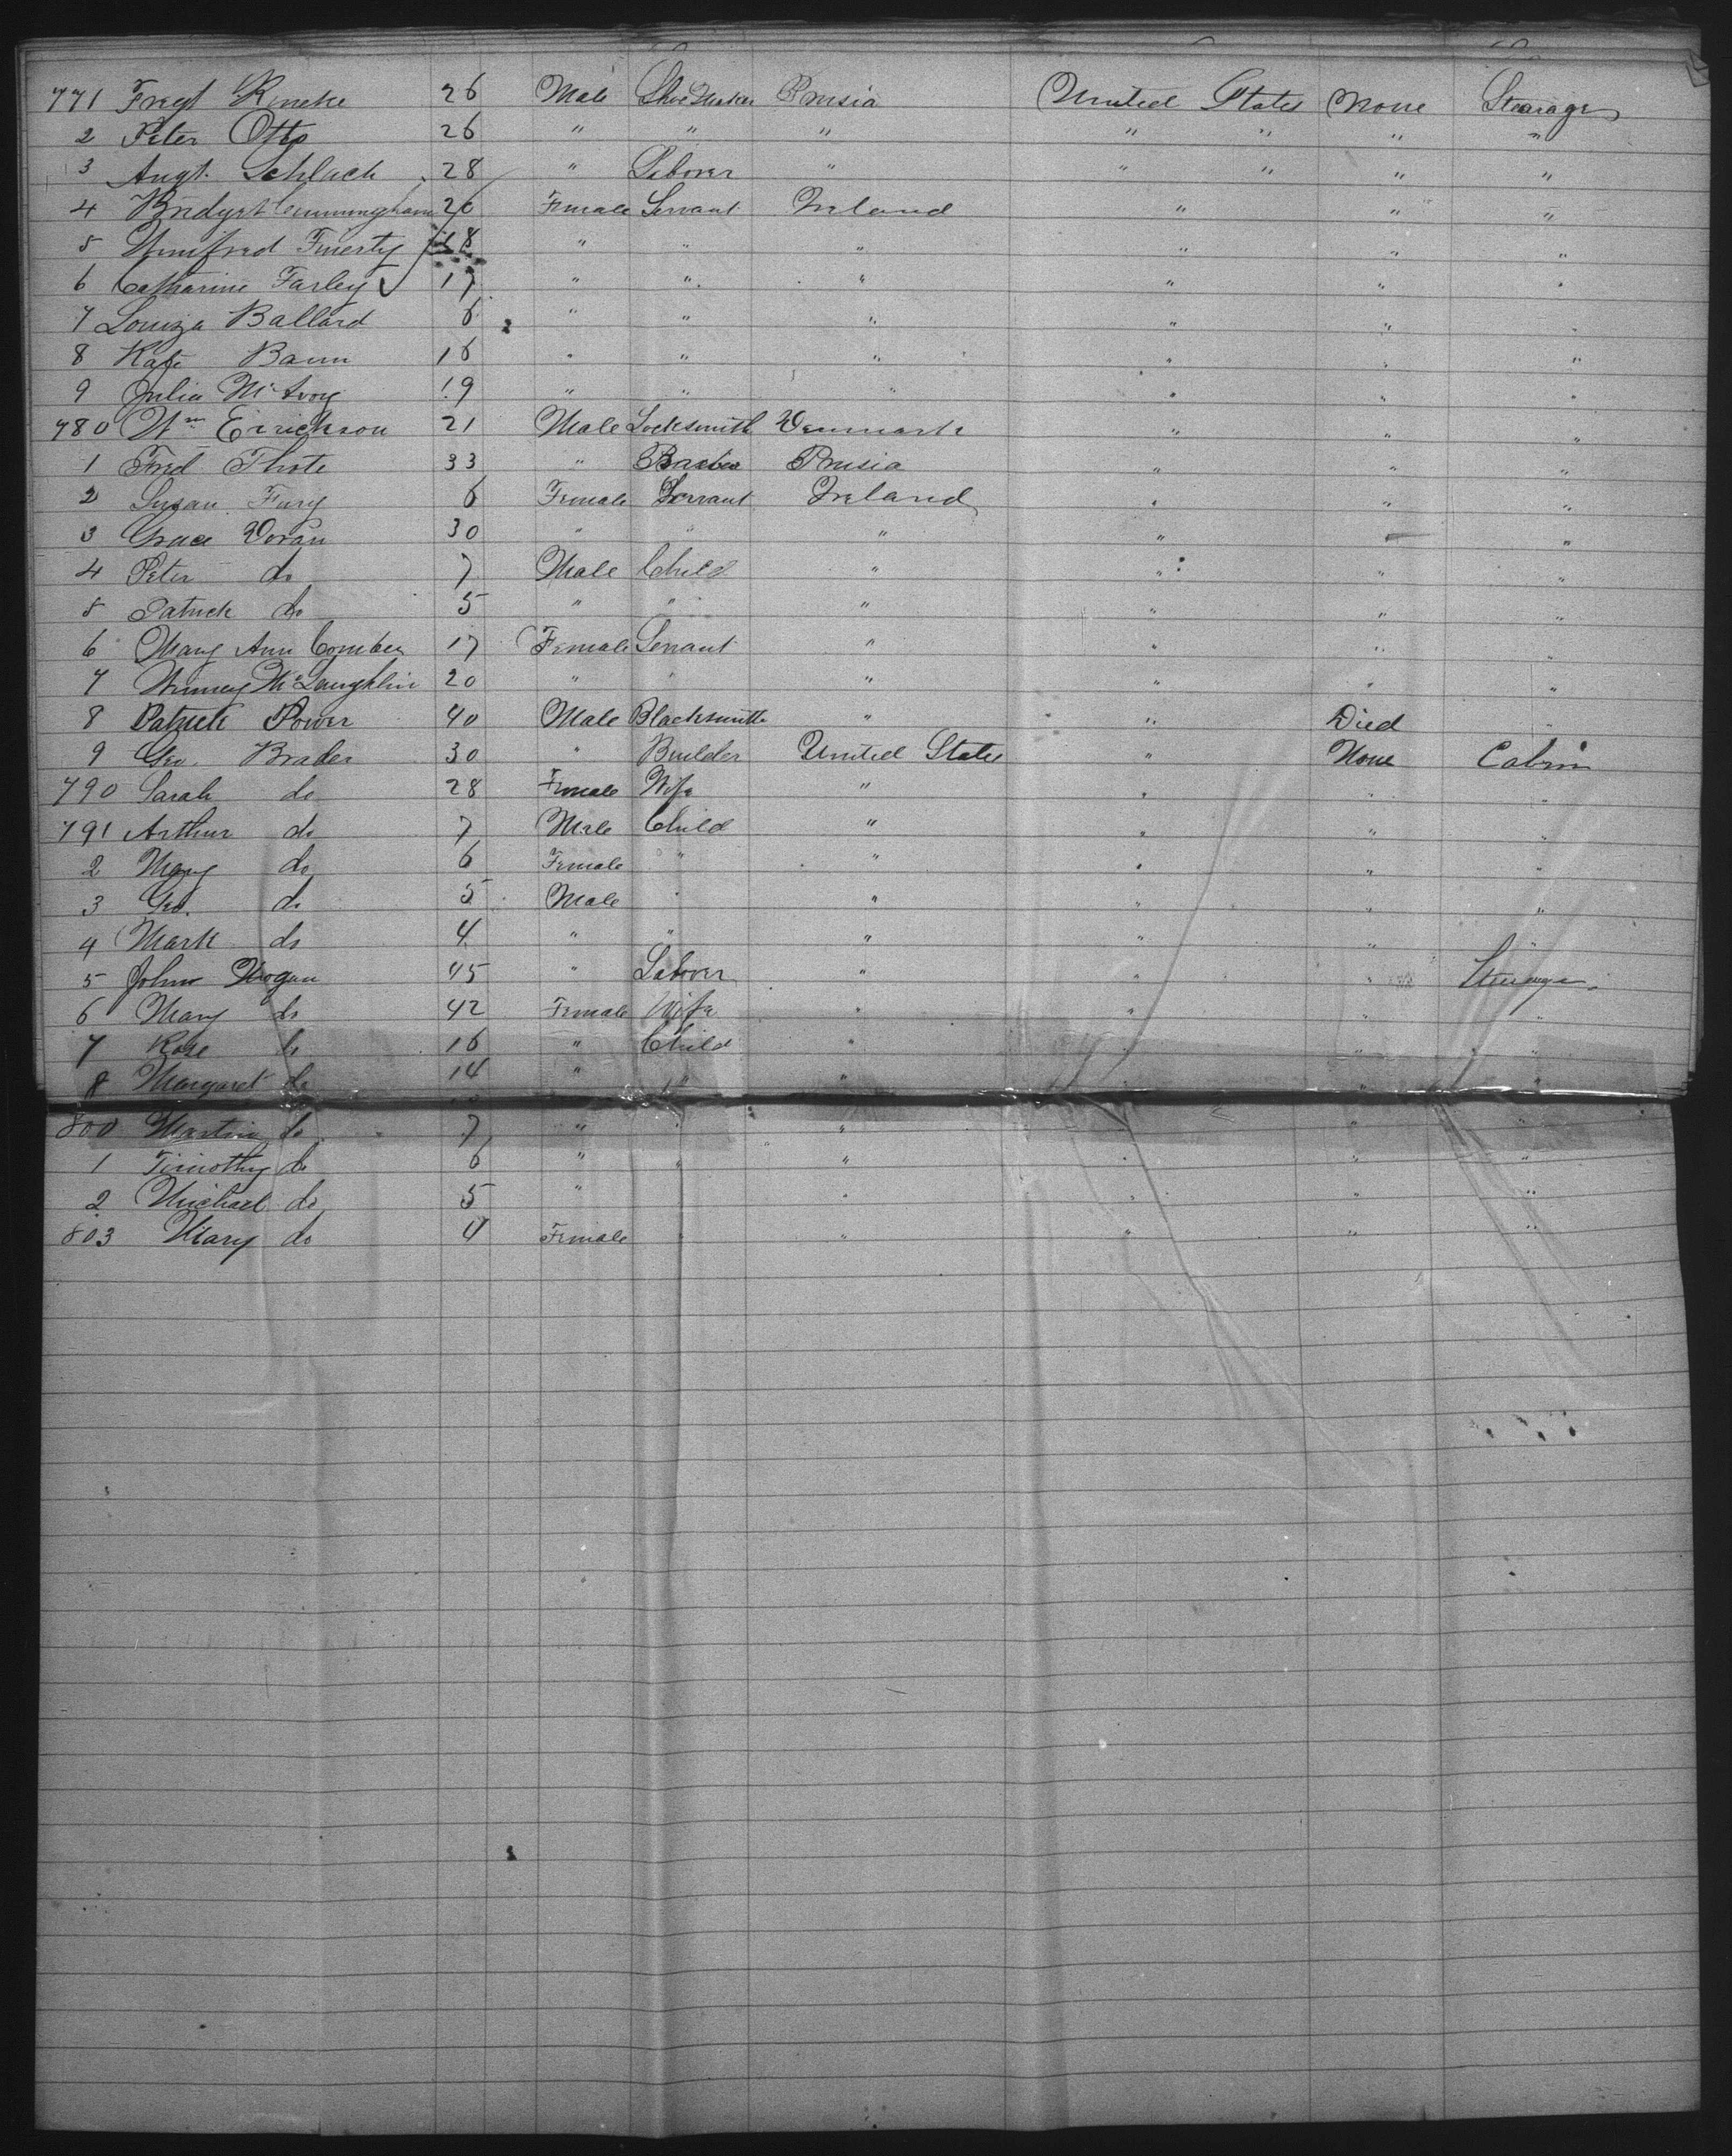 771 Fred Rincke 26 Male Shoe Maker Prusia United States None Stearage
2 Peter Otto 26 " " " " " " "
3 Augt. Schlach 28 " Laborer " " " " "
4 Bridget Cunningham 20 Female Servant Ireland " " "
5 Winifred Finerty 18 " " " " " "
6 Catharine Farley 17 " " " " " "
7 Louiza Ballard 6 " " " " " "
8 Kate Bann 16 " " " " " "
9 Julia McAvoy 19 " " " " " "
780 Wm Eirickson 21 Male Locksmith Denmark " " "
1 Fred Thote 33 " Prusia " " "
2 Susan Fury 6 Female Servant Ireland " " "
3 Grace Doran 30 " " " " " "
4 Peter do 7 Male Child " " " "
5 Patrick do 5 " " " " " "
6 Mary Ann Comber 17 Female Servant " " " "
7 Winney McLaughlin 20 " " " " " "
8 Patrick Power 40 Male Blacksmith " " Died "
9 Geo. Brader 30 " Builder United States " None Cabin
790 Sarah do 28 Female Wife " " " "
791 Arthur do 7 Male Child " " " "
2 Mary do 6 Female " " " " "
3 Geo. do 5 Male " " " " "
4 Mark do 4 " " " " " "
5 John Hogan 45 " Laborer " " " Stearage
6 Mary do 42 Female Wife " " " "
7 Rose do 16 " Child " " " "
8 Margaret do 14 " " " " " "
800 Martin do 7 " " " " "
1 Timothy do 6 " " " " " "
2 Michael do 5 " " " " "
803 Mary do 4 Female " " " " "